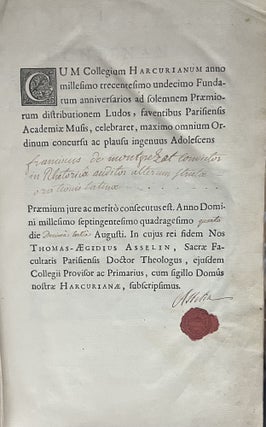 CUM Collegium HARCURIANUM anno
millesimo trecentesimo undecimo Funda-
tum anniversarios ad solemnem Præmio-
rum distributionem Ludos, faventibus Parisiensis
Academiæ Musis, celebraret, maximo omnium Or-
dinum concursu ac plausu ingenuus Adolescens
franciscus de montpezat convictor
in Rhetorica auditor alterum strictæ
orationis latinæ
Præmium jure ac meritò consecutus est. Anno Domi-
ni millesimo septingentesimo quadragesimo quarto
die Decima tertia Augusti. In cujus rei fidem Nos
THOMAS-ÆGIDIUS ASSELIN, Sacræ Fa-
cultatis Parisiensis Doctor Theologus, ejusdem
Collegii Provisor ac Primarius, cum sigillo Domûs
nostræ HARCURIANÆ, subscripsimus.
Asselin